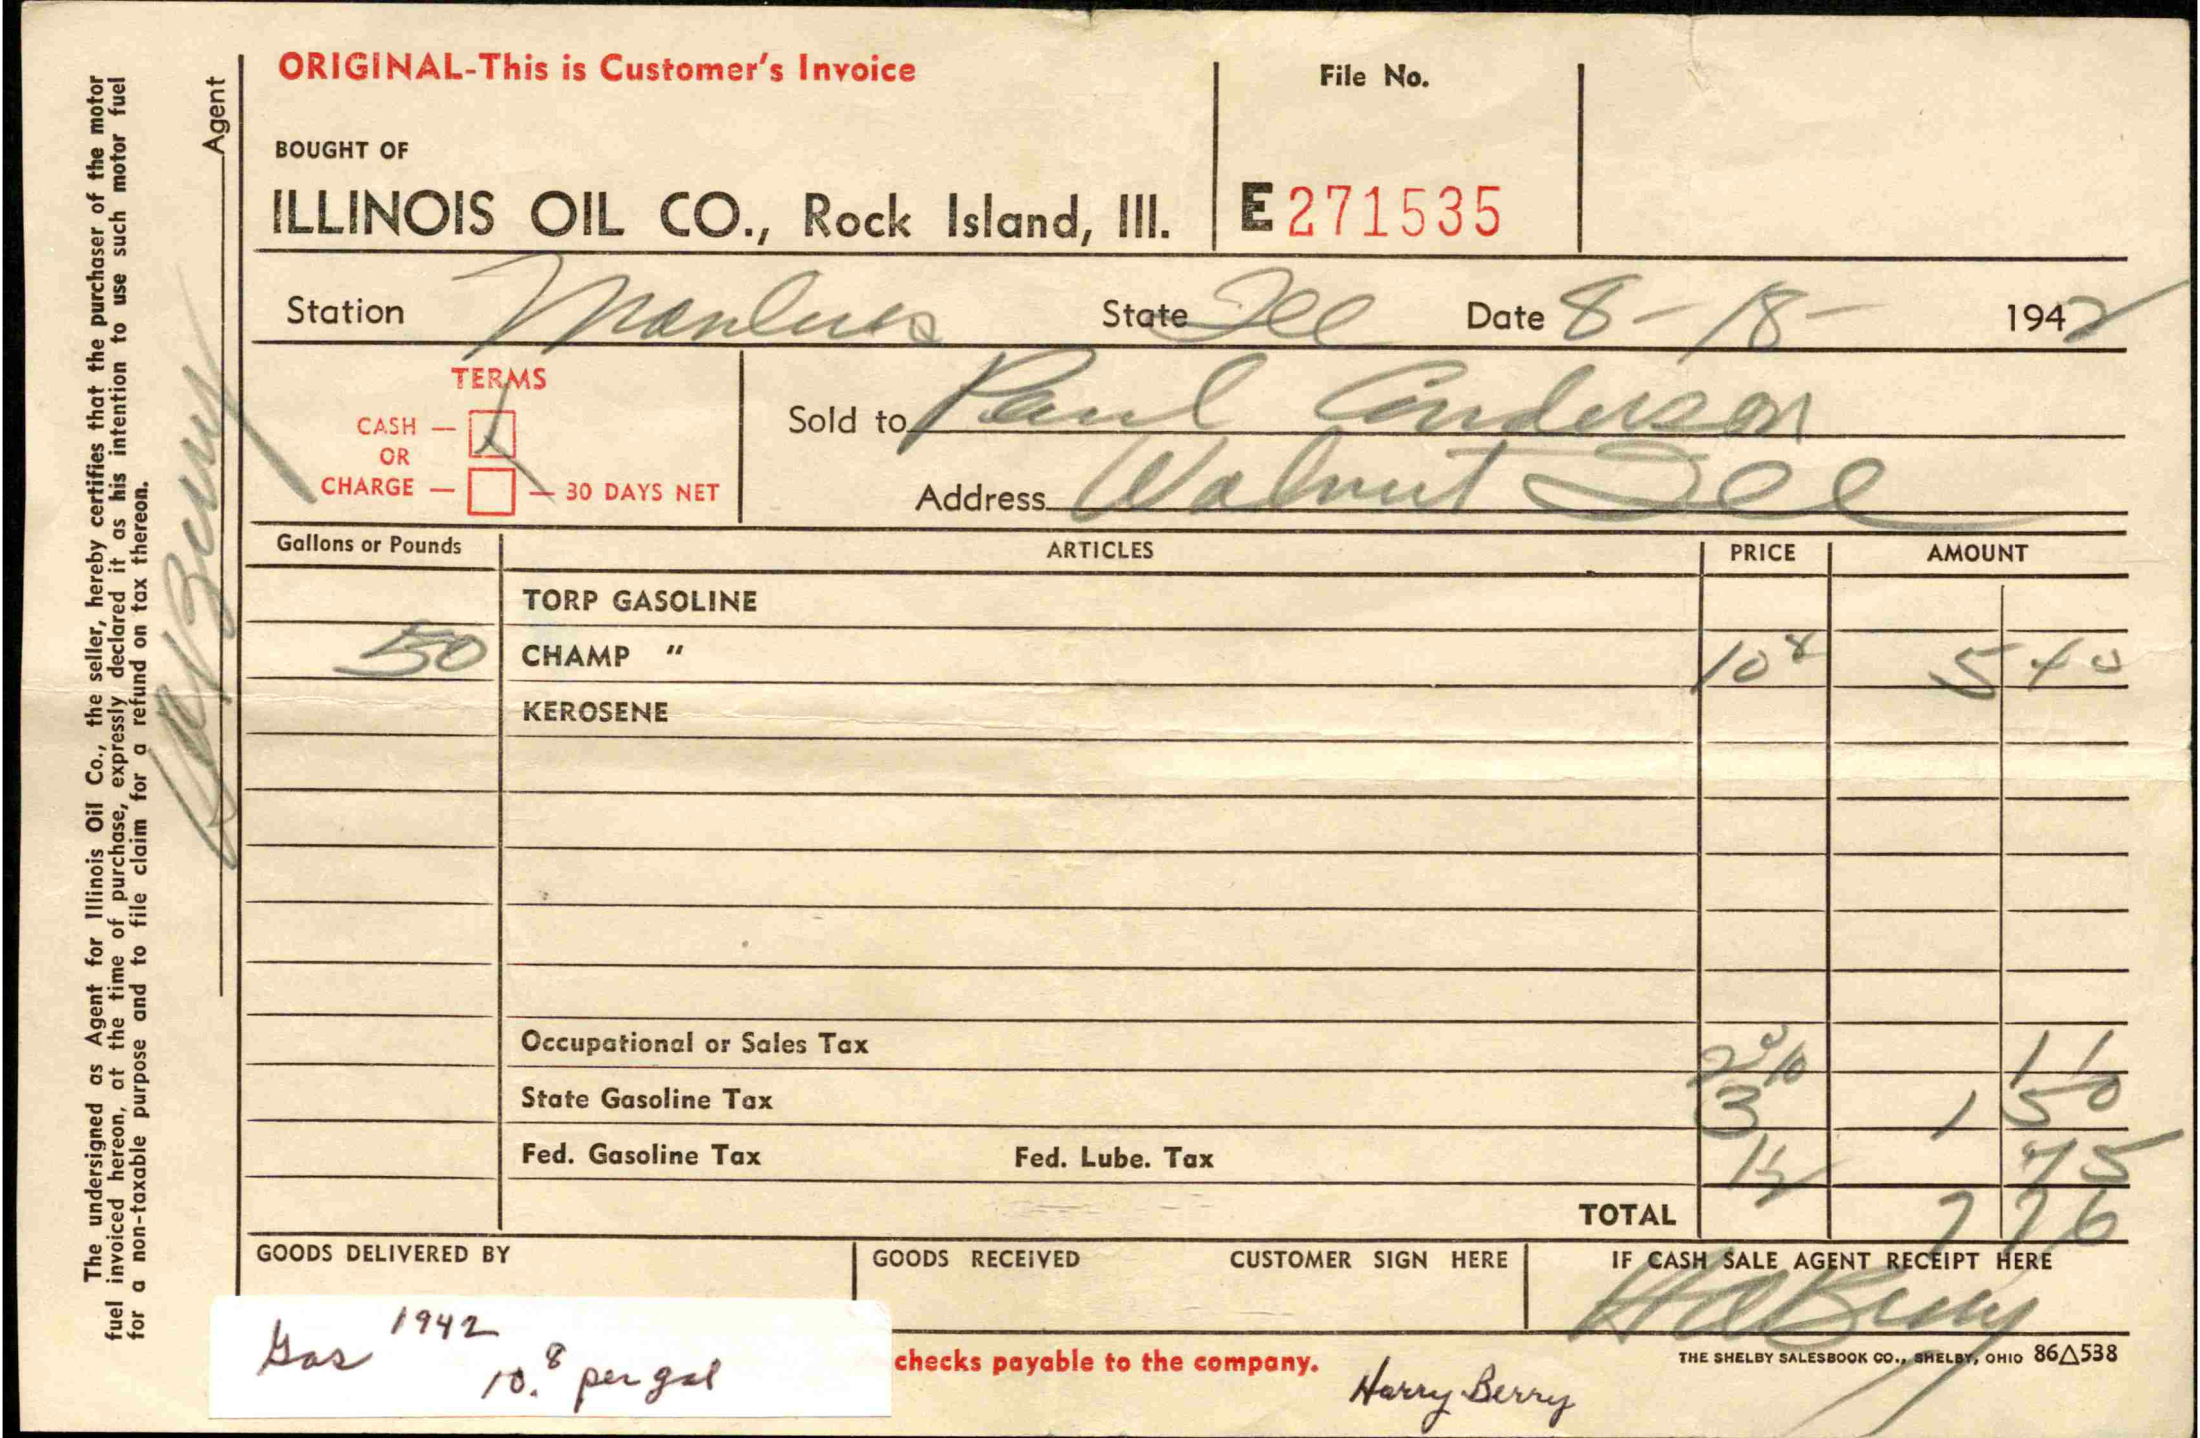 ORIGINAL-This is Customer's Invoice
File No.
BOUGHT OF
ILLINOIS OIL CO., Rock Island, Ill.
E 271535
Station Manlius State Ill Date 8-18- 1942
TERMS
CASH —
OR
CHARGE — — 30 DAYS NET
Sold to Paul Anderson
Address Walnut Ill
Gallons or Pounds ARTICLES PRICE AMOUNT
TORP GASOLINE
50 CHAMP " 10 8 5 40
KEROSENE
Occupational or Sales Tax 2% 11
State Gasoline Tax 3 1 50
Fed. Gasoline Tax Fed. Lube. Tax 1½ 75
TOTAL 7 76
GOODS DELIVERED BY
GOODS RECEIVED CUSTOMER SIGN HERE
IF CASH SALE AGENT RECEIPT HERE
HA Berry
checks payable to the company.
THE SHELBY SALESBOOK CO., SHELBY, OHIO 86△538
Harry Berry
Gas 1942
10.8 per gal
The undersigned as Agent for Illinois Oil Co., the seller, hereby certifies that the purchaser of the motor
fuel invoiced hereon, at the time of purchase, expressly declared it as his intention to use such motor fuel
for a non-taxable purpose and to file claim for a refund on tax thereon.
HA Berry
Agent